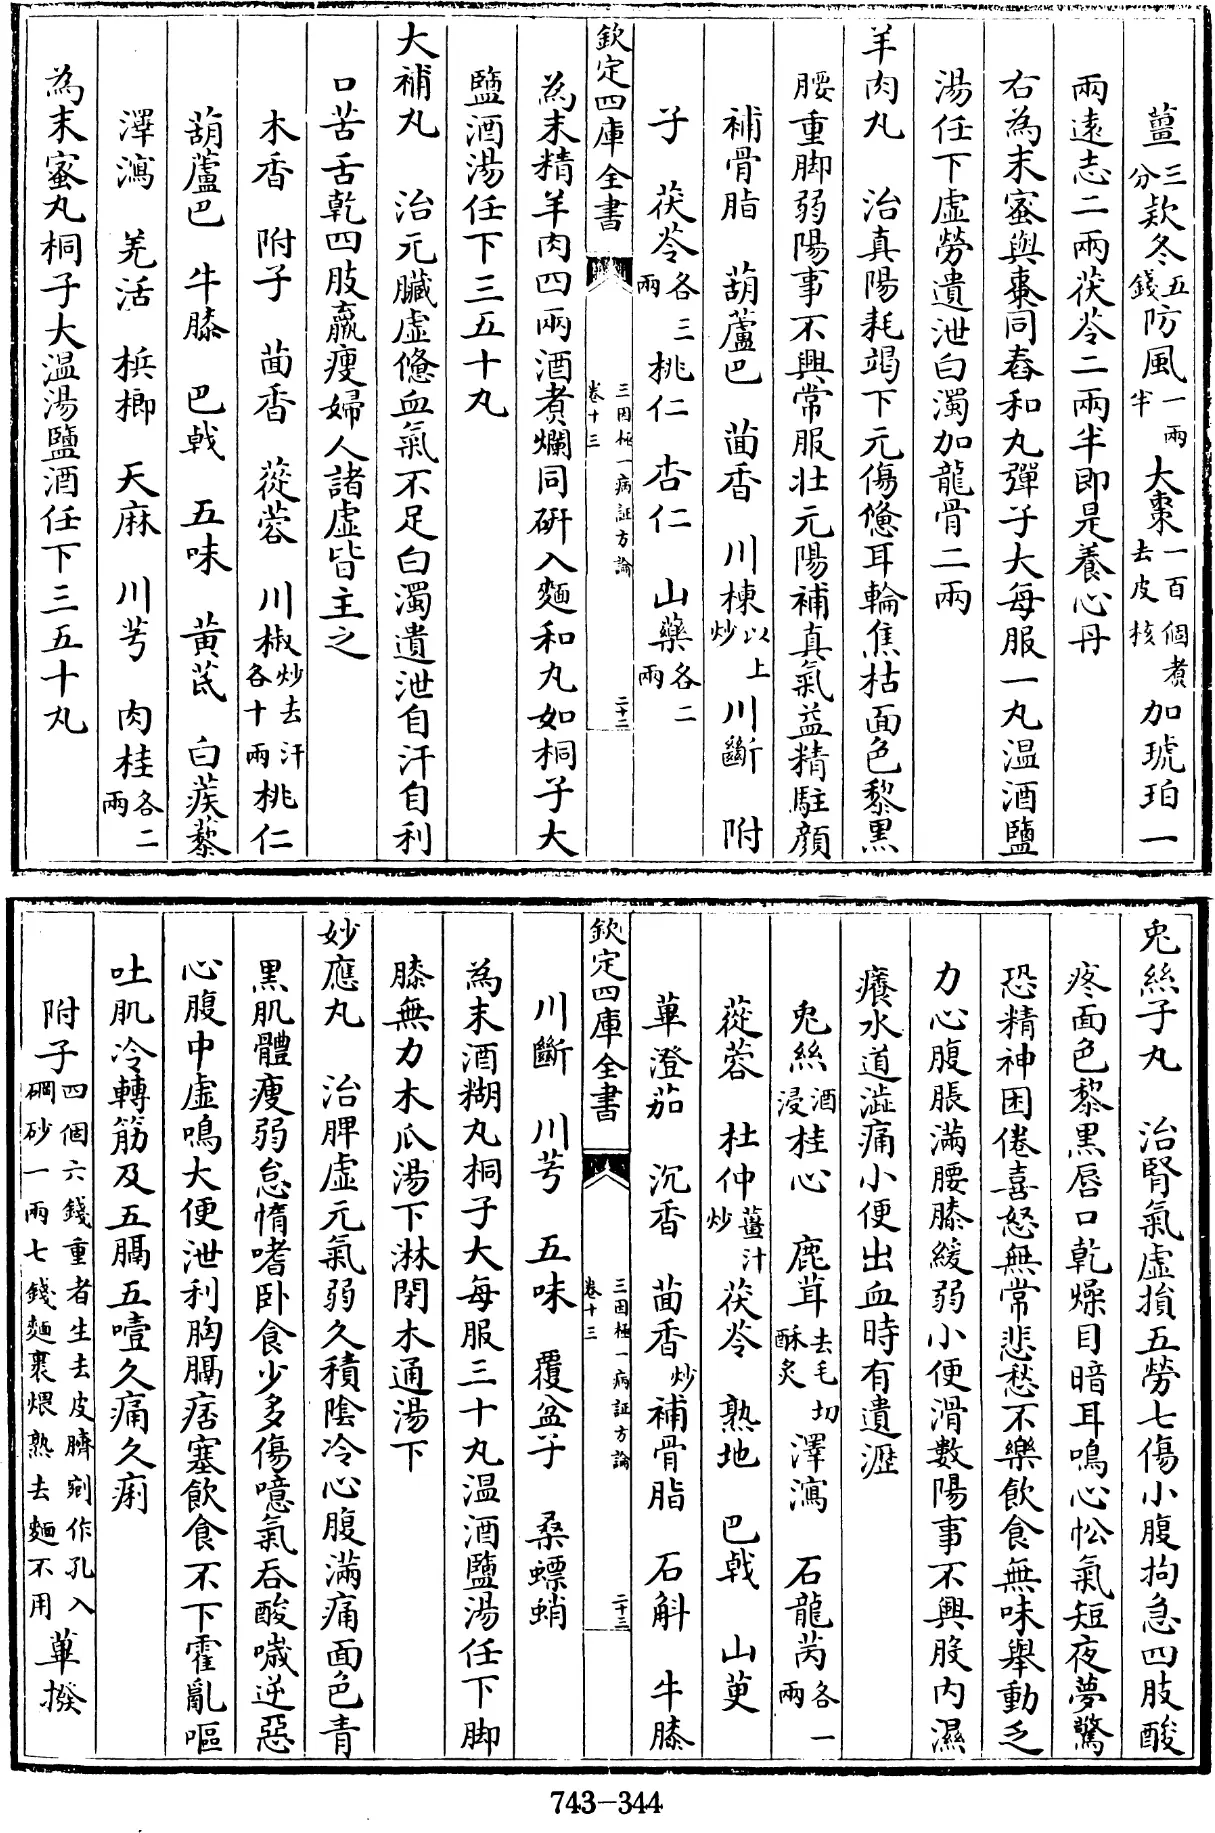 薑三分款冬五錢防風一兩半大棗一百個煮去皮核加琥珀一
兩遠志二兩茯苓二兩半即是養心丹
右為末蜜與棗同舂和丸彈子大每服一丸温酒鹽
湯任下虛勞遺泄白濁加龍骨二兩
羊肉丸 治真陽耗竭下元傷憊耳輪焦枯面色黎黑
腰重脚弱陽事不興常服壯元陽補真氣益精駐顔
補骨脂 葫蘆巴 茴香 川楝以上炒 川斷 附
子 茯苓各三兩 桃仁 杏仁 山藥各二兩
欽定四庫全書 三因極一病証方論 卷十三 二十二
為末精羊肉四兩酒煮爛同研入麵和丸如桐子大
鹽酒湯任下三五十丸
大補丸 治元臟虛憊血氣不足白濁遺泄自汗自利
口苦舌乾四肢羸瘦婦人諸虛皆主之
木香 附子 茴香 蓯蓉 川椒炒去汗各十兩 桃仁
葫蘆巴 牛膝 巴戟 五味 黄茋 白蒺藜
澤瀉 羌活 梹榔 天麻 川芎 肉桂各二兩
為末蜜丸桐子大温湯鹽酒任下三五十丸
兎絲子丸 治腎氣虛損五勞七傷小腹拘急四肢酸
疼面色黎黑唇口乾燥目暗耳鳴心忪氣短夜夢驚
恐精神困倦喜怒無常悲愁不樂飲食無味舉動乏
力心腹脹滿腰膝緩弱小便滑數陽事不興股内濕
癢水道澁痛小便出血時有遺瀝
兎絲酒浸 桂心 鹿茸去毛切酥炙 澤瀉 石龍芮各一兩
蓯蓉 杜仲薑汁炒 茯苓 熟地 巴戟 山萸
蓽澄茄 沉香 茴香炒 補骨脂 石斛 牛膝
欽定四庫全書 三因極一病証方論 卷十三 二十三
川斷 川芎 五味 覆盆子 桑螵蛸
為末酒糊丸桐子大每服三十丸温酒鹽湯任下脚
膝無力木瓜湯下淋閉木通湯下
妙應丸 治脾虛元氣弱久積陰冷心腹滿痛面色青
黑肌體瘦弱怠惰嗜卧食少多傷噫氣吞酸噦逆惡
心腹中虛鳴大便泄利胸膈痞塞飲食不下霍亂嘔
吐肌冷轉筋及五膈五噎久痛久痢
附子四個六錢重者生去皮臍剜作孔入硇砂一兩七錢麵裹煨熟去麵不用 蓽撥
743-344